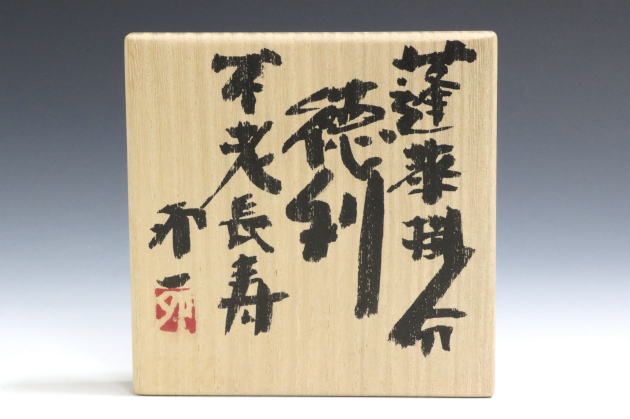 蓬莱掛分
徳利
不老長寿